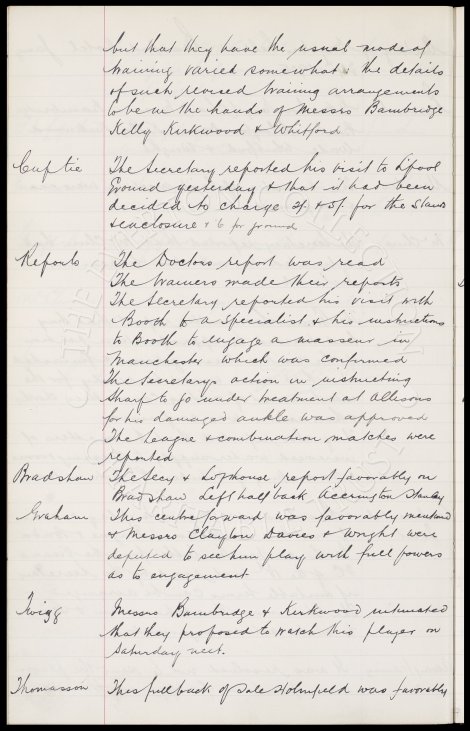 but that they have the usual mode of
training varied somewhat: the details
of such revised training arrangements
to be in the hands of Messrs Bainbridge
Kelly Kirkwood & Whitford
Cup tie The Secretary reported his visit to L'pool
Ground yesterday & that it had been
decided to charge 2/- & 5/- for the Stands
& enclosure & 1/6 for ground
Reports The Doctors report was read
The trainers made their reports
The Secretary reported his visit with
Booth to a Specialist & his instructions
to Booth to engage a masseur in
Manchester which was confirmed
The Secretarys action in instructing
Sharp to go under treatment at Allisons
for his damaged ankle was approved
The League & combination matches were
reported
Bradshaw The Secy & Lofthouse report favorably on
Bradshaw Left half back Accrington Stanley
Graham This centre forward was favorably mentioned
& Messrs Clayton Davies & Wright were
deputed to see him play with full powers
as to engagement
Twigg Messrs Bainbridge & Kirkwood intimated
that they proposed to watch this player on
Saturday next.
Thomasson This full back of Sale Holmefield was favorably